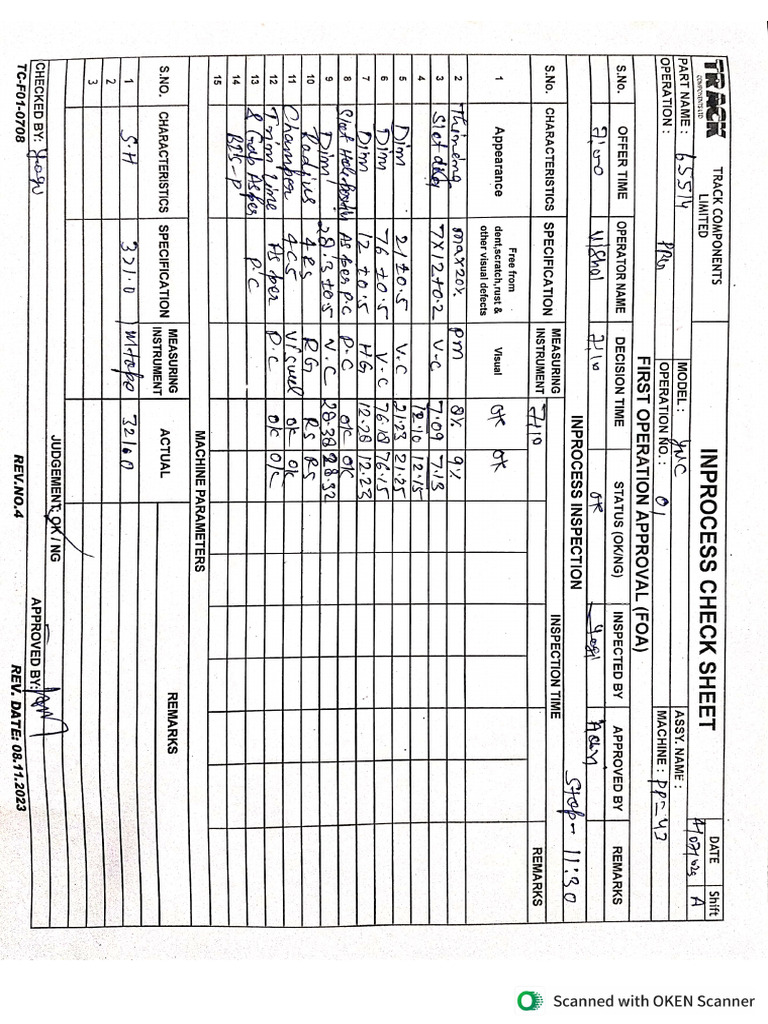 TRACK
COMPONENTS LTD
TRACK COMPONENTS LIMITED
INPROCESS CHECK SHEET
DATE
Shift
A
PART NAME : 65514
MODEL :
ASSY. NAME :
OPERATION :
OPERATION NO.: 01
MACHINE : PP-43
FIRST OPERATION APPROVAL (FOA)
S.No. OFFER TIME OPERATOR NAME DECISION TIME STATUS (OK/NG) INSPECTED BY APPROVED BY REMARKS
7:00 Vishal 7:10 OK Yogi
INPROCESS INSPECTION
Stop- 11:30
S.No. CHARACTERISTICS SPECIFICATION MEASURING INSTRUMENT INSPECTION TIME REMARKS
7:10
1 Appearance Free from dent,scratch,rust & other visual defects Visual OK OK
2 Thinning max20% PM 8% 9%
3 Slot dim 7X12±0.2 V.C 7.09 7.13
4 12.10 12.15
5 Dim 21±0.5 V.C 21.23 21.25
6 Dim 76±0.5 V.C 76.18 76.15
7 Dim 12±0.5 HG 12.28 12.23
8 Slot Hole As per P.C P.C OK OK
9 Dim 28.3±0.5 V.C 28.38 28.32
10 Radius 4R5 RG R5 R5
11 Champer 4C5 Visual OK OK
12 Trim line As per P.C OK OK
13 & Gap As per P.C
14
15
MACHINE PARAMETERS
S.NO. CHARACTERISTICS SPECIFICATION MEASURING INSTRUMENT ACTUAL REMARKS
1 S.H 321.0 M.tape 321.0
2
3
JUDGEMENT: OK / NG
CHECKED BY: Yogi
APPROVED BY:
TC-F01-0708
REV.NO.4
REV. DATE: 08.11.2023
Scanned with OKEN Scanner